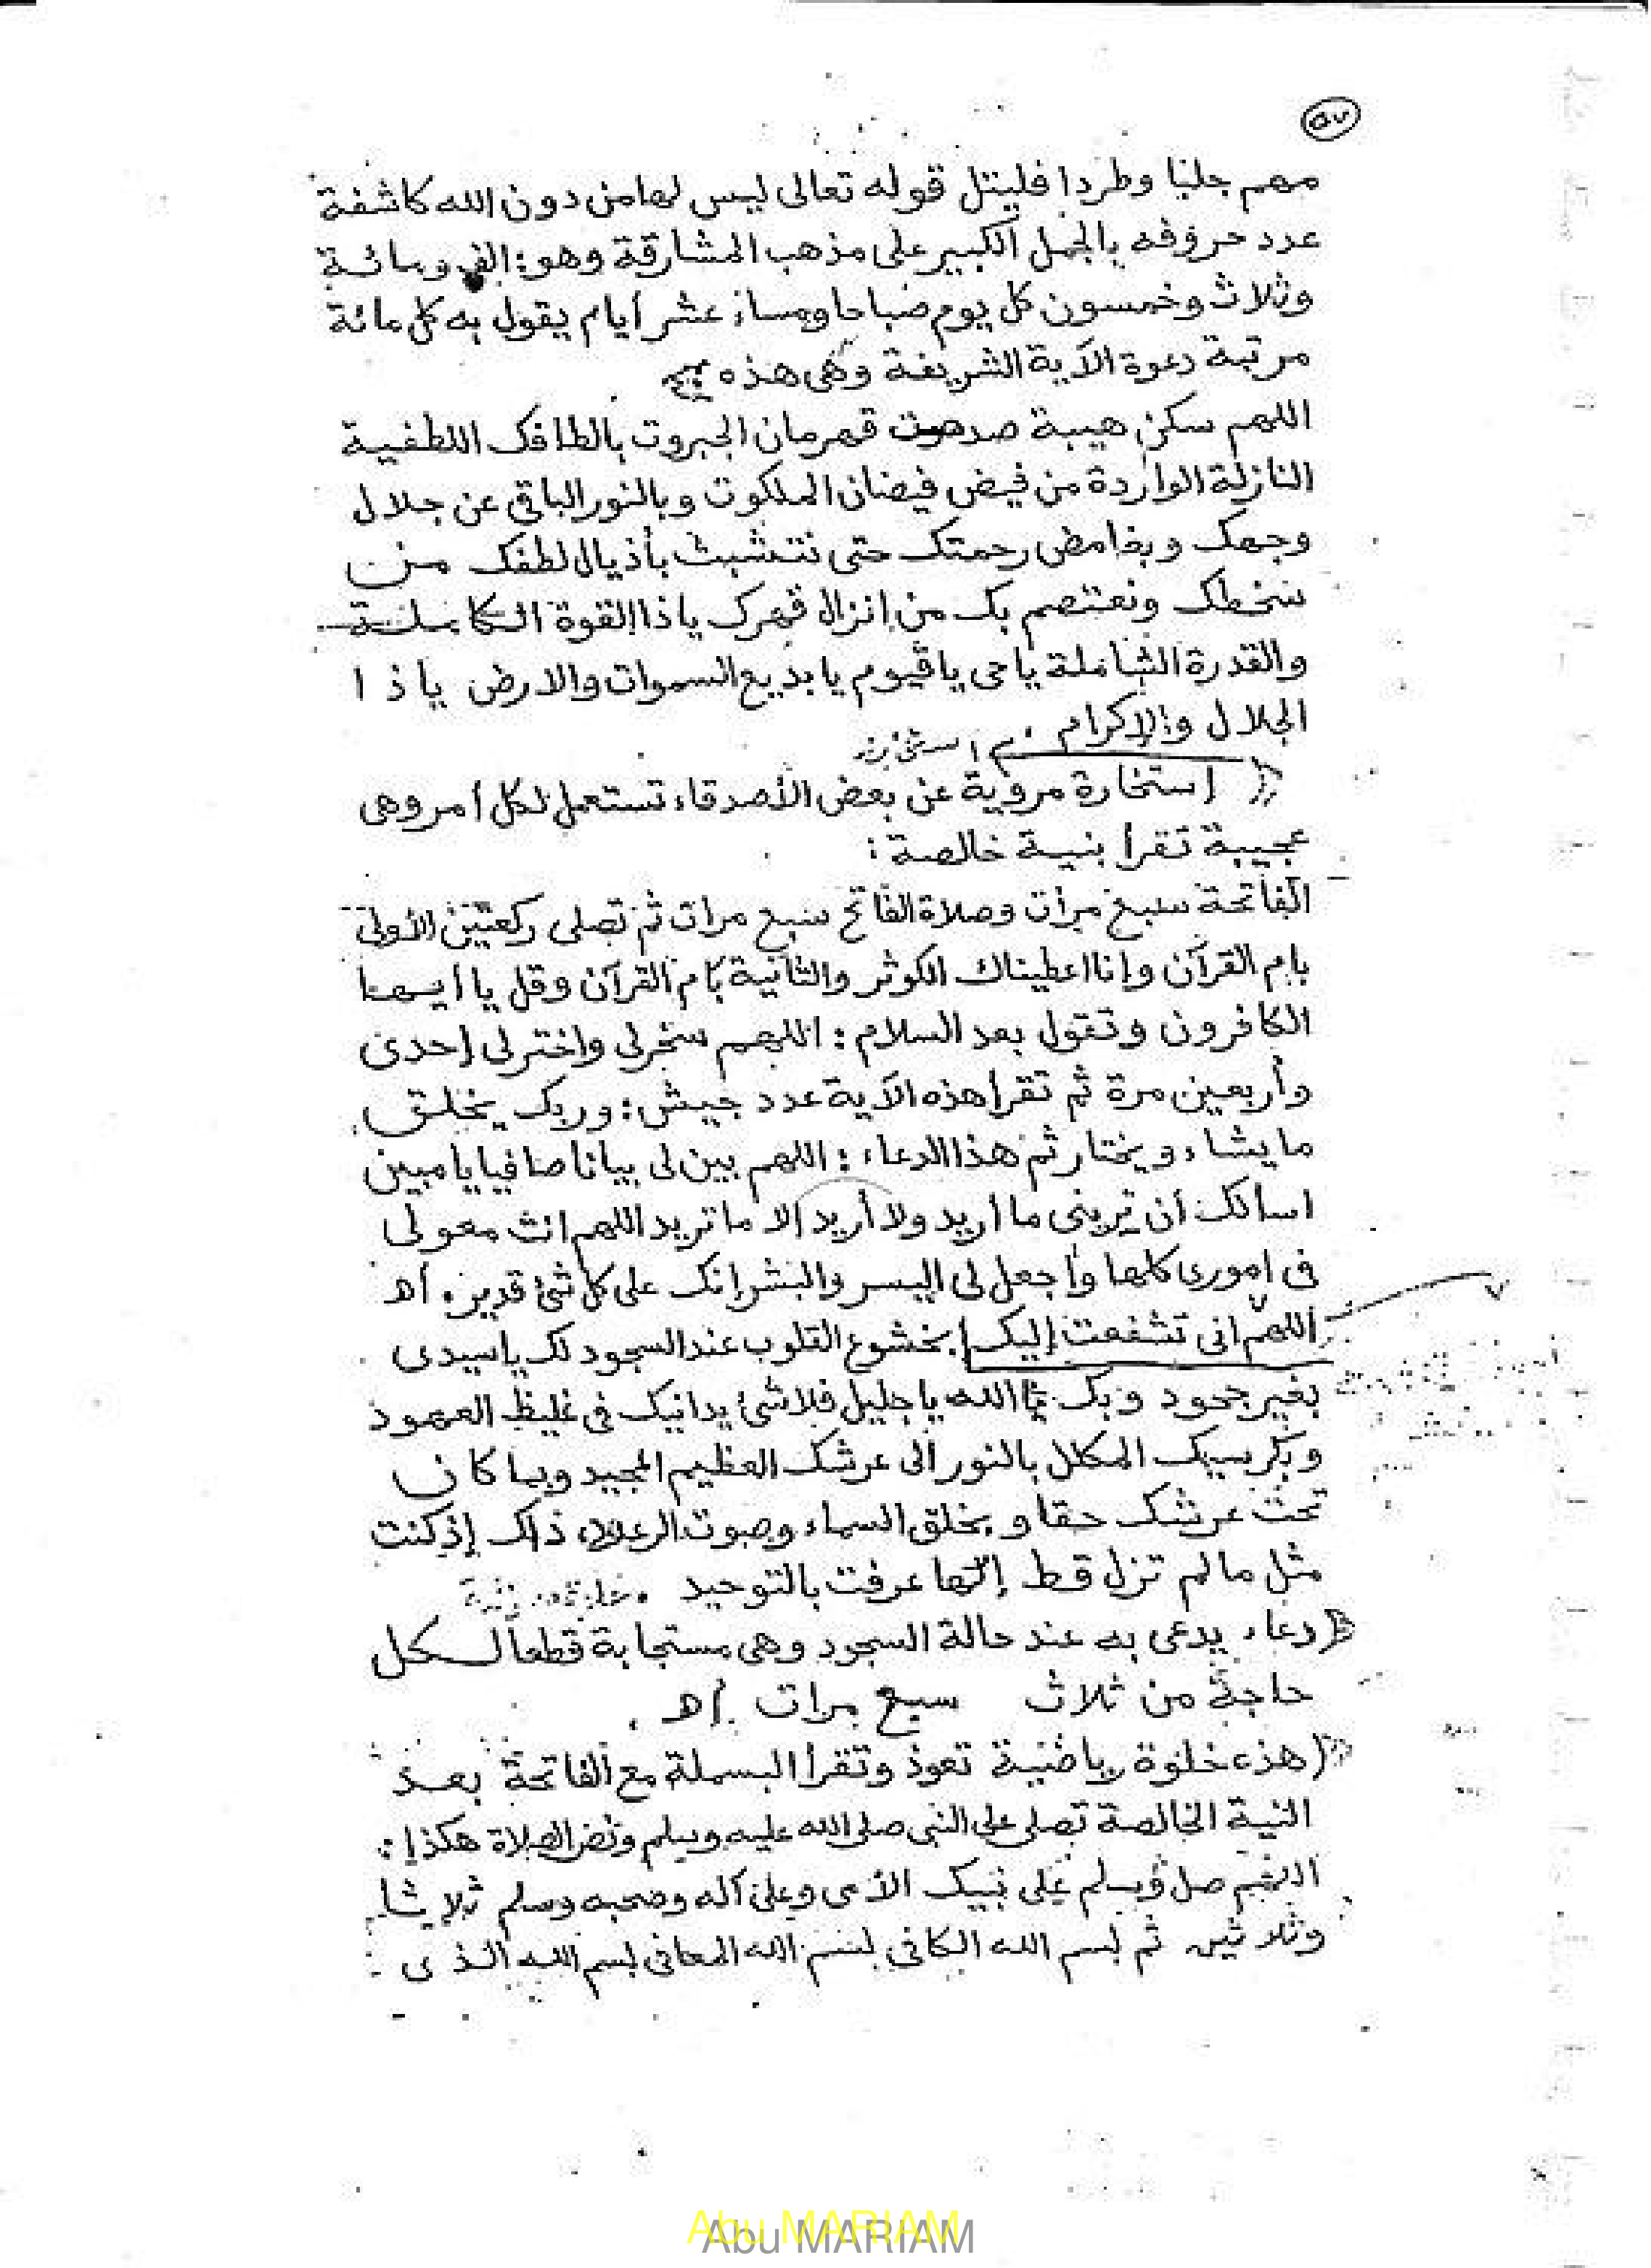 ٥٧
مهم جلبا وطردا فليتل قوله تعالى ليس لها من دون الله كاشفة
عدد حروفه بالجمل الكبير على مذهب المشارقة وهو: الف ومائة
وثلاث وخمسون كل يوم صباحا ومساء عشر أيام يقول به كل مائة
مرتبة دعوة الآية الشريفة وهى هذه
اللهم سكن هيبة صدمت قهرمان الجبروت بالطافك اللطفية
النازلة الواردة من فيض فيضان الملكوت وبالنور الباقى عن جلال
وجهك وبغامض رحمتك حتى نتشبث بأذيال لطفك من
سخطك ونعتصم بك من إنزال قهرك ياذا القوة الكاملة
والقدرة الشاملة ياحى ياقيوم يا بديع السموات والارض ياذا
الجلال والإكرام
إستخارة مروية عن بعض الأصدقاء تستعمل لكل أمر وهى
عجيبة تقرأ بنية خالصة :
الفاتحة سبع مرات وصلاة الفاتح سبع مرات ثم تصلى ركعتين الأولى
بام القرآن وإنا اعطيناك الكوثر والثانية بأم القرآن وقل يا أيها
الكافرون وتقول بعد السلام : اللهم سخرلى واخترلى إحدى
وأربعين مرة ثم تقرأ هذه الآية عدد جيش : وربك يخلق
ما يشاء ويختار ثم هذا الدعاء : اللهم بين لى بيانا صافيا يا مبين
اسألك أن ترينى ما أريد ولا أريد إلا ما تريد اللهم انت معولى
فى امورى كلها وأجعل لى اليسر والبشر إنك على كل شئ قدير . أهـ
اللهم انى تشفعت إليك بخشوع القلوب عند السجود لك ياسيدى
بغير جحود وبك يا الله يا جليل فلا شئ يدانيك فى غليظ العهود
وبكرسيك المكلل بالنور الى عرشك العظيم المجيد وبما كان
تحت عرشك حقا وبخلق السماء وصوت الرعود، ذاك إذ كنت
مثل مالم تزل قط إلها عرفت بالتوحيد .
دعاء يدعى به عند حالة السجود وهى مستجابة قطعا لكل
حاجة من ثلاث سبع مرات أهـ .
هذه خلوة رياضية تعوذ وتقرأ البسملة مع الفاتحة بعد
النية الخالصة تصلى على النبى صلى الله عليه وسلم ونص الصلاة هكذا :
اللهم صل وسلم على نبيك الأمى وعلى آله وصحبه وسلم ثلاثا
وثلاثين ثم بسم الله الكافى بسم الله المعافى بسم الله الذى :
Abu MARIAM
Abu MARIAM